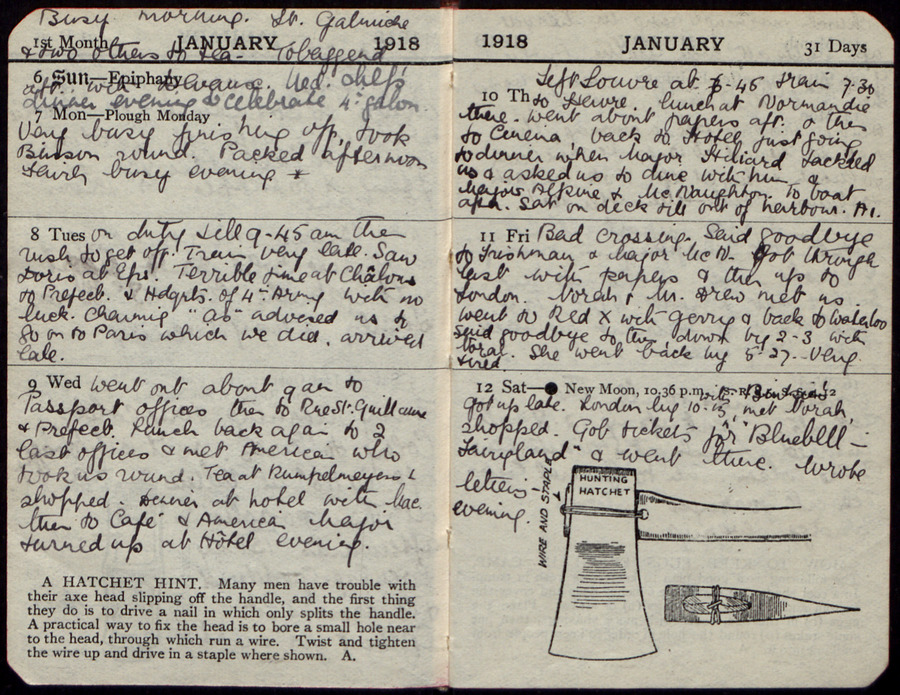 Busy morning. Lt. Galniche
1st Month JANUARY 1918
& two others to tea. Toboggend
6 Sun—Epiphany
aft. with Med. chefs
dinner evening to celebrate 4th galon
7 Mon—Plough Monday
Very busy finishing off, took
Binson round. Packed afternoon
Fairly busy evening *
8 Tues on duty till 9-45 am then
rush to get off. Train very late. Saw
Doris at Eps! Terrible time at Châlons
to Prefect. & Hdqrts. of 4th Army with no
luck. Charming "as" advised us to
go on to Paris which we did. arrived
late.
9 Wed Went out about 9 am to
Passport offices then to Rue St. Guillaume
& Prefect. Lunch back again to 2
last offices & met American who
took us round. Tea at Rumpelmeyers &
shopped. Dinner at hotel with Mac
then to Café & American Major
turned up at Hôtel evening.
A HATCHET HINT. Many men have trouble with
their axe head slipping off the handle, and the first thing
they do is to drive a nail in which only splits the handle.
A practical way to fix the head is to bore a small hole near
to the head, through which run a wire. Twist and tighten
the wire up and drive in a staple where shown. A.
1918 JANUARY 31 Days
Left Louvre at 6-45 train 7-30
10 Th to Havre. Lunch at Normandie
there. Went about papers aft. & then
to Cinema, back to Hotel just going
to dinner when Major Hilliard tackled
us & asked us to dine with him &
Majors Alpine & McNaughton. To boat
after. Sat on deck till out of harbour. A1.
11 Fri Bad crossing. Said goodbye
to Irishman & Major McN. Got through
last with papers & then up to
London. Norah & Mr. Drew met us.
Went to Red X with Gerry & back to Waterloo
said goodbye to then down by 2-3 with
Norah. She went back by 5-27. Very
tired.
12 Sat—● New Moon, 10.36 p.m.
Got up late. London by 10-15, met Norah,
shopped. Got tickets for "Bluebell in
Fairyland" & went there. Wrote
letters
evening.
WIRE AND STAPLE
HUNTING
HATCHET